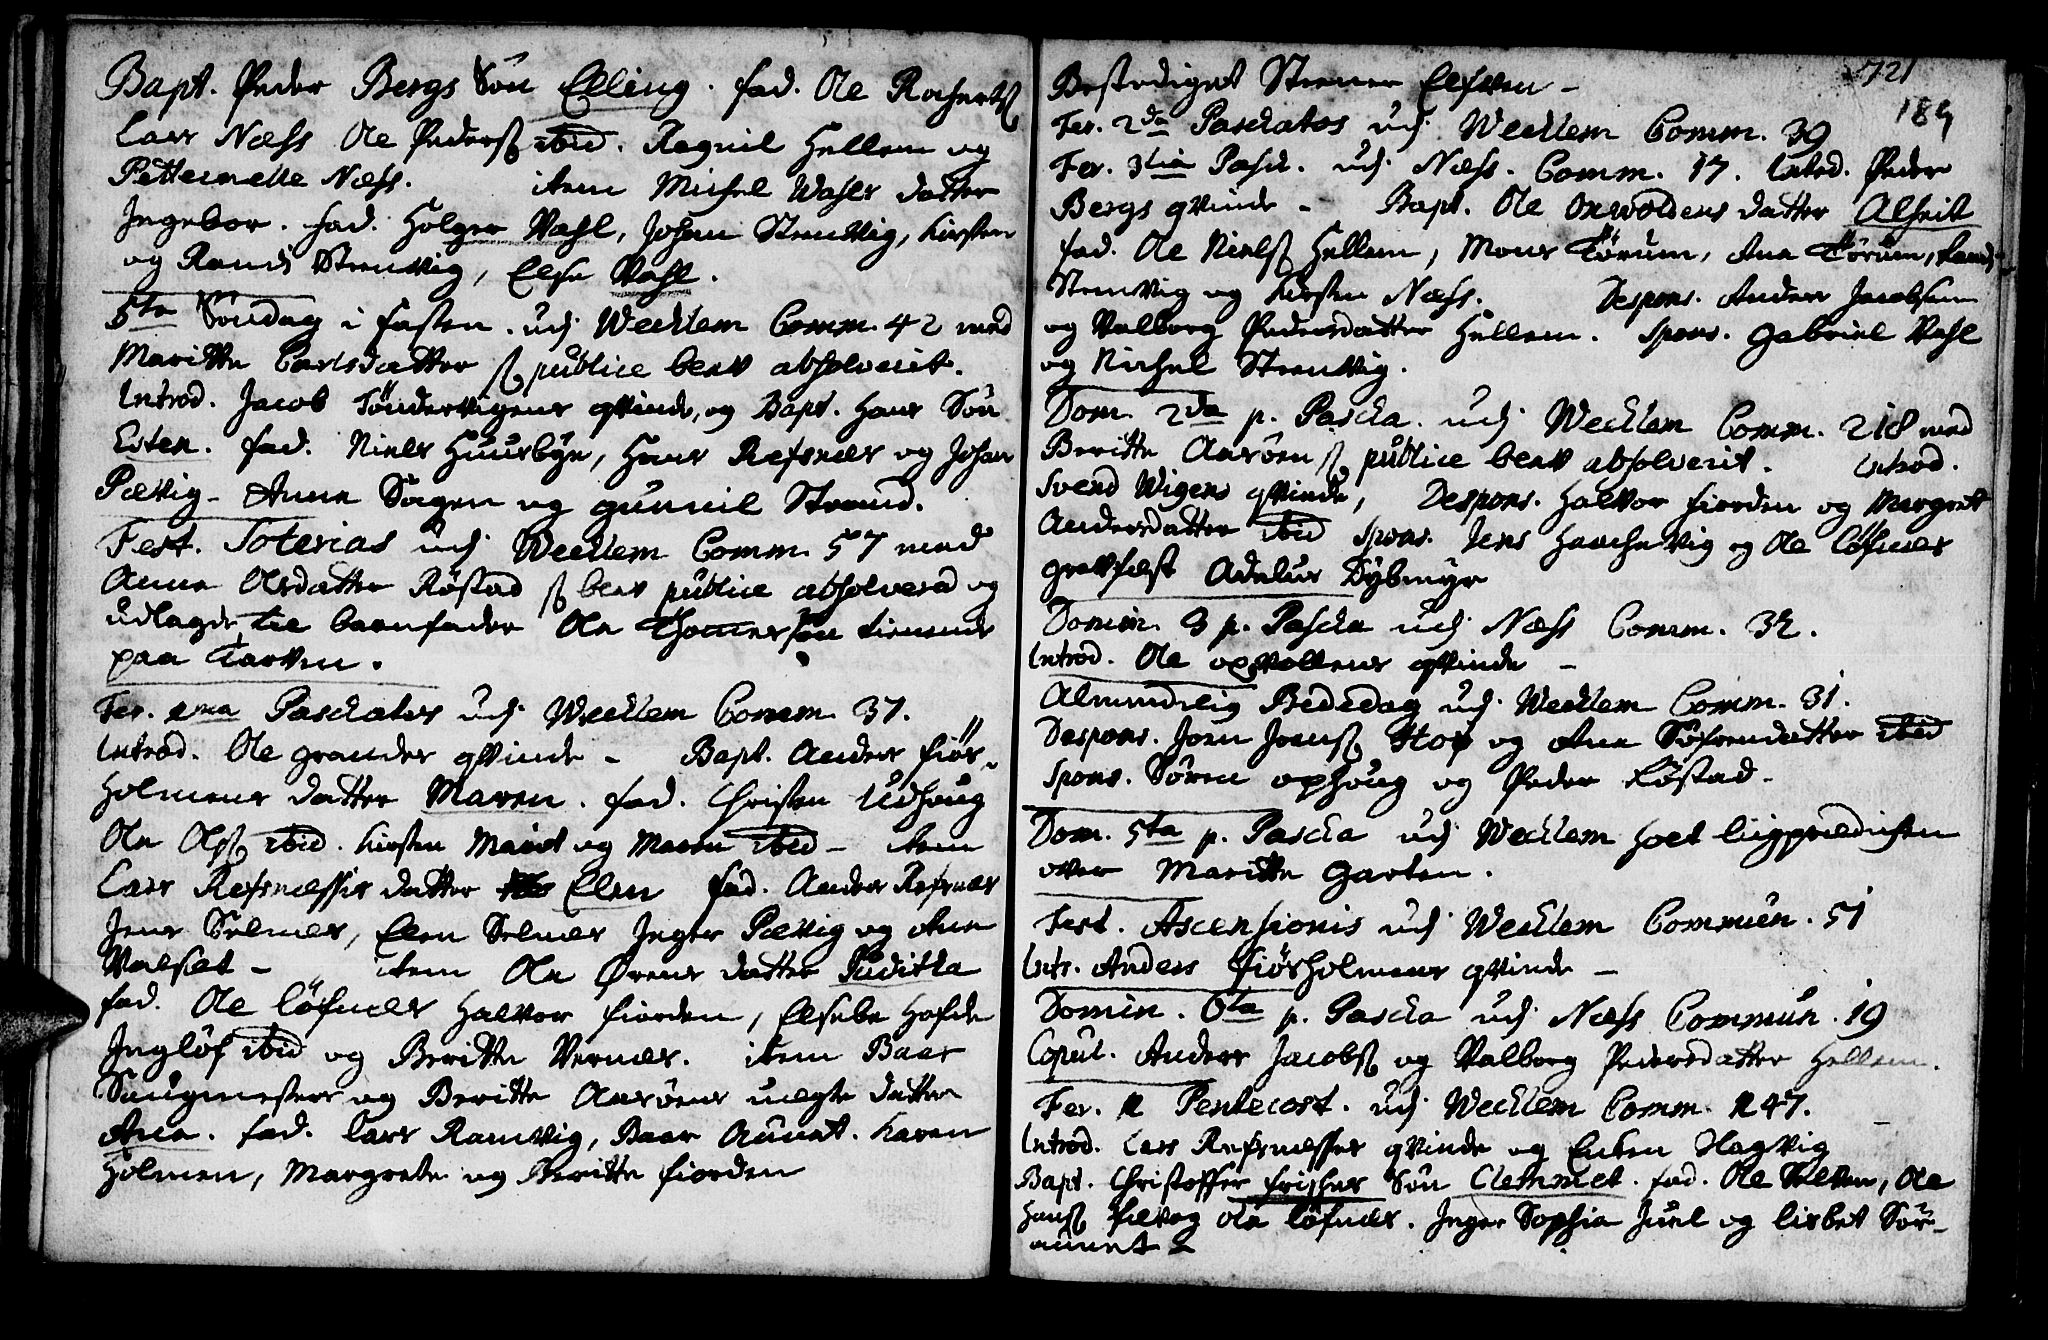 Bapt. Peder Bergs Søn Elling. fad. Ole Rofserts
Lars Næss Ole Peders ibid. Ragnil Hellem og
Petternelle Næss. item Michel Wahls datter
Ingebor. fad. Holger Vahl, Johan Stenvig, Kirsten
og Randi Stenvig, Else Vahl.
5te Søndag i fasten. udj Wechlem Comm. 42 med
Maritte Carlsdatter s publice blev absolverit.
Introd. Jacob Tøndervigens qvinde, og Bapt. Hans Søn
Esten. fad. Niels Huusbye, Hans Refsnes og Johan
Pævig. Anna Sagen og gunnil Strand.
Fest. Soterias udj Wechlem Comm. 57 med
Anna Olsdatter Røstad s blev publice absolvera og
udlagde til barnfader Ole Thomessøn tienende
paa Tarven.
Fer. 1ma Paschatos udj Wechlem Comm. 37.
Introd. Ole grandes qvinde - Bapt. Anders fiørs-
holmens datter Maren. fad. Christen Udhoug
Ole Ols ibid. Kirsten Marit og Maren ibid - item
Lars Refsnessis datter Elen fad. Anders Refsnes
Jens Selnes, Elen Selnes Inger Pævig og Ane
Valset - item Ole Ørens datter Juditha
fad. Ole Løfnes Halvor fiorden, Elsebe Hofde
Ingløf ibid og Beritte Vernes. item Baar
Saugmesters og Beritte Aasøens uægte datter
Ane. fad. Lars Ramvig, Baar Aunet. Karen
Holmen, Margrete og Beritte fiorden
721
189
Bestediget Steener Elfven -
Fer. 2da Paschatos udj Wechlem Comm. 39
Fer. 3tia Pasch. udj Næss. Comm. 17. Introd. Peder
Bergs qvinde - Bapt. Ole Oxvoldens datter Alheit
fad. Ole Niels Hellem, Mons Tørum, Ane Tørum, Randi
Stenvig og Kirsten Næss. Despons. Anders Jacobsen
og Valborg Pedersdatter Hellem. Spons. Gabriel Vahl
og Michel Steenvig.
Dom. 2da p. Pascha. udj Wechlem Comm. 218 med
Beritte Aasøen s publice blev absolverit. Introd.
Svend Wigens qvinde, Despons. Halvor fiorden og Margret
Andersdatter ibid Spons. Jens Haschevig og Ole Løfnes
grevfæst Adelus Dybmyr
Domin. 3 p. Pascha udj Næss Comm. 32.
Introd. Ole oxvollens qvinde -
Almindelig Bededag udj Wechlem Comm. 31.
Despons. Joen Joens Hop og Ane Sørensdatter ibid
Spons. Søren ophoug og Peder Røstad -
Dom. 5ta p. Pascha udj Wechlem holt liigprædichen
over Maritte Garten.
Fest. Ascensionis udj Wechlem Commun. 51
Intr. Anders fiørsholmens qvinde -
Domin. 6ta p. Pascha udj Næss Commun. 19
Copul. Anders Jacobs og Valborg Pedersdatter Hellem.
Fer. 1 Pentecost. udj Wechlem Comm. 147.
Introd. Lars Refsnesses qvinde og Enken Hagvig
Bapt. Christoffer Frisches Søn Clemmet. fad. Ole Volden, Ole
Hans Ole Løfnes. Inger Sophia Juel og lisbet Sør-
aunet